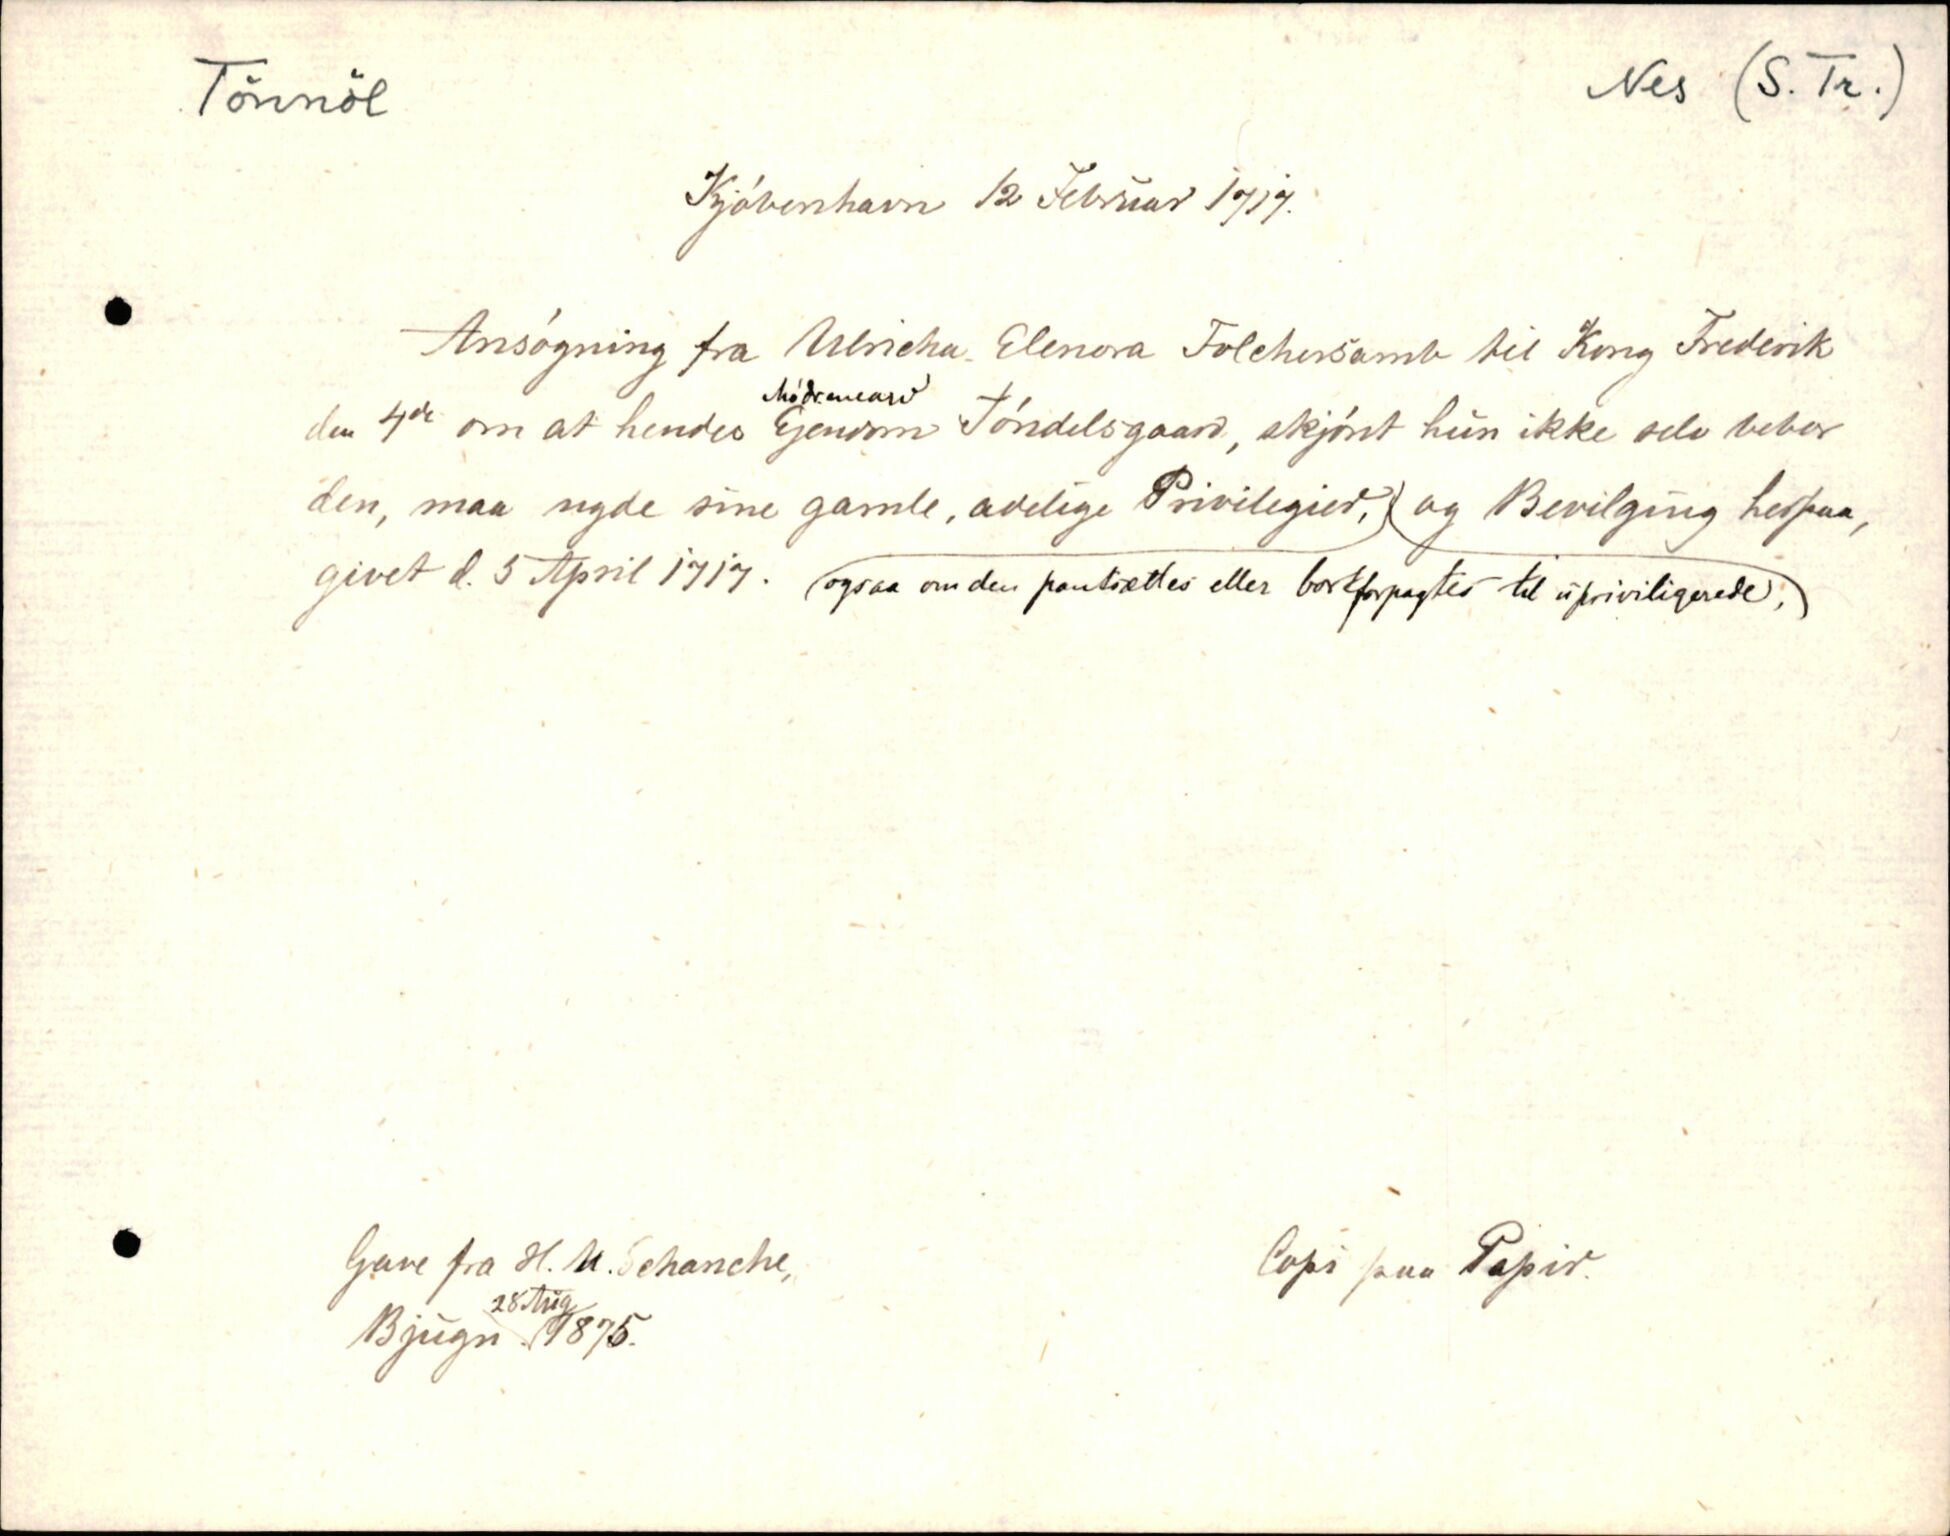 Tönnöl
Nes (S. Tr.)
Kjóbenhavn 12 Februar 1717.
Ansógning fra Ulricha Elenora Folchersamb til Kong Frederik
Mödrenearv
den 4de om at hendes Ejendom Tóndelsgaard, skjónt hun ikke selv beboer
den, maa nyde sine gamle, adelige Privilegier, og Bevilging herpaa,
givet d. 5 April 1717. (ogsaa om den pantsættes eller bortforpagtes til upriviligerede,)
Gave fra H. U. Schanche,
28 Aug
Bjugn. 1875.
Copi paa Papir.